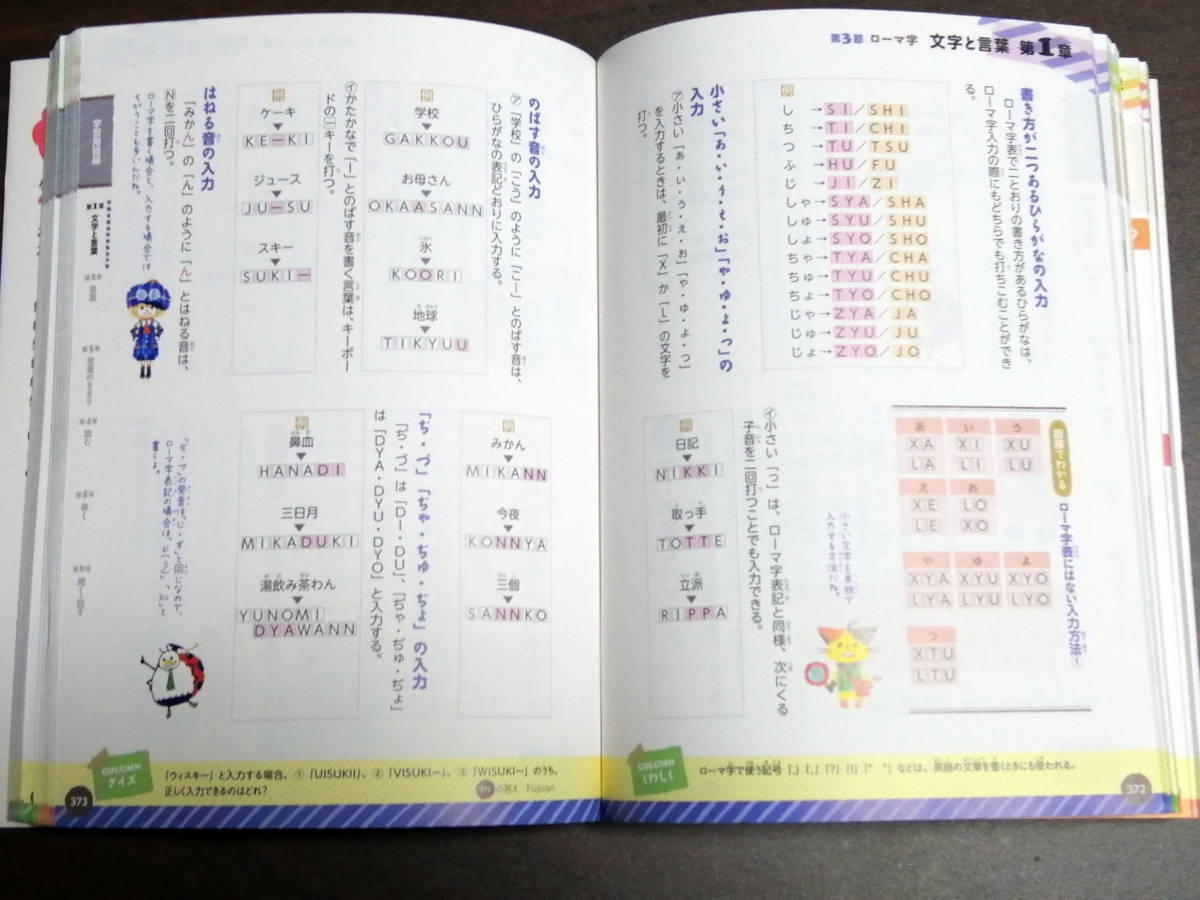 第3節 ローマ字 文字と言葉 第1章
書き方が二つあるひらがなの入力
ローマ字表で二とおりの書き方があるひらがなは、
ローマ字入力の際にもどちらでも打ちこむことができ
る。
例
し→SI/SHI
ち→TI/CHI
つ→TU/TSU
ふ→HU/FU
じ→JI/ZI
しゃ→SYA/SHA
しゅ→SYU/SHU
しょ→SYO/SHO
ちゃ→TYA/CHA
ちゅ→TYU/CHU
ちょ→TYO/CHO
じゃ→ZYA/JA
じゅ→ZYU/JU
じょ→ZYO/JO
小さい「あ・い・う・え・お」「や・ゆ・よ・っ」の
入力
㋐小さい「あ・い・う・え・お」「や・ゆ・よ・っ」
を入力するときは、最初に「X」か「L」の文字を
打つ。
図解でわかる
ローマ字表にはない入力方法①
あ い う
XA XI XU
LA LI LU
え お
XE LO
LE XO
や ゆ よ
XYA XYU XYO
LYA LYU LYO
つ
XTU
LTU
小さい文字を単独で
入力する方法だね。
㋑小さい「つ」は、ローマ字表記と同様、次にくる
子音を二回打つことでも入力できる。
例
日記
NIKKI
取っ手
TOTTE
立派
RIPPA
COLUMN
くわしく
372
のばす音の入力
㋐「学校」の「こう」のように「こー」とのばす音は、
ひらがなの表記どおりに入力する。
例
学校
GAKKOU
お母さん
OKAASANN
氷
KOORI
地球
TIKYUU
㋑かたかなで「ー」とのばす音を書く言葉は、キーボー
ドの ー キーを打つ。
例
ケーキ
KEーKI
ジュース
JUーSU
スキー
SUKIー
はねる音の入力
「みかん」の「ん」のように「ん」とはねる音は、
Nを二回打つ。
ローマ字を書く場合と、入力する場合では
ちがうことも多いんだね。
例
みかん
MIKANN
今夜
KONNYA
三個
SANNKO
「ぢ・づ」「ぢゃ・ぢゅ・ぢょ」の入力
「ぢ・づ」は「DI・DU」、「ぢゃ・ぢゅ・ぢょ」
は「DYA・DYU・DYO」と入力する。
例
鼻血
HANADI
三日月
MIKADUKI
湯飲み茶わん
YUNOMI
DYAWANN
学習日
第1章 文字と言葉
第4章 読む
第5章 書く
COLUMN
クイズ
「ウィスキー」と入力する場合、①「UISUKII」、②「VISUKIー」、③「WISUKIー」のうち、
正しく入力できるのはどれ?
の答え Fujisan
373